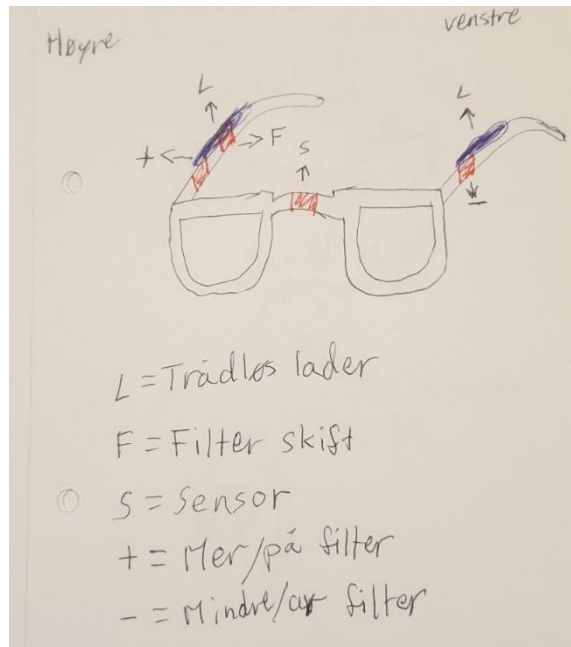 Høyre
venstre
L
L
+
F
S
-
L = Trådløs lader
F = Filter skift
S = Sensor
+ = Mer/på filter
- = Mindre/av filter